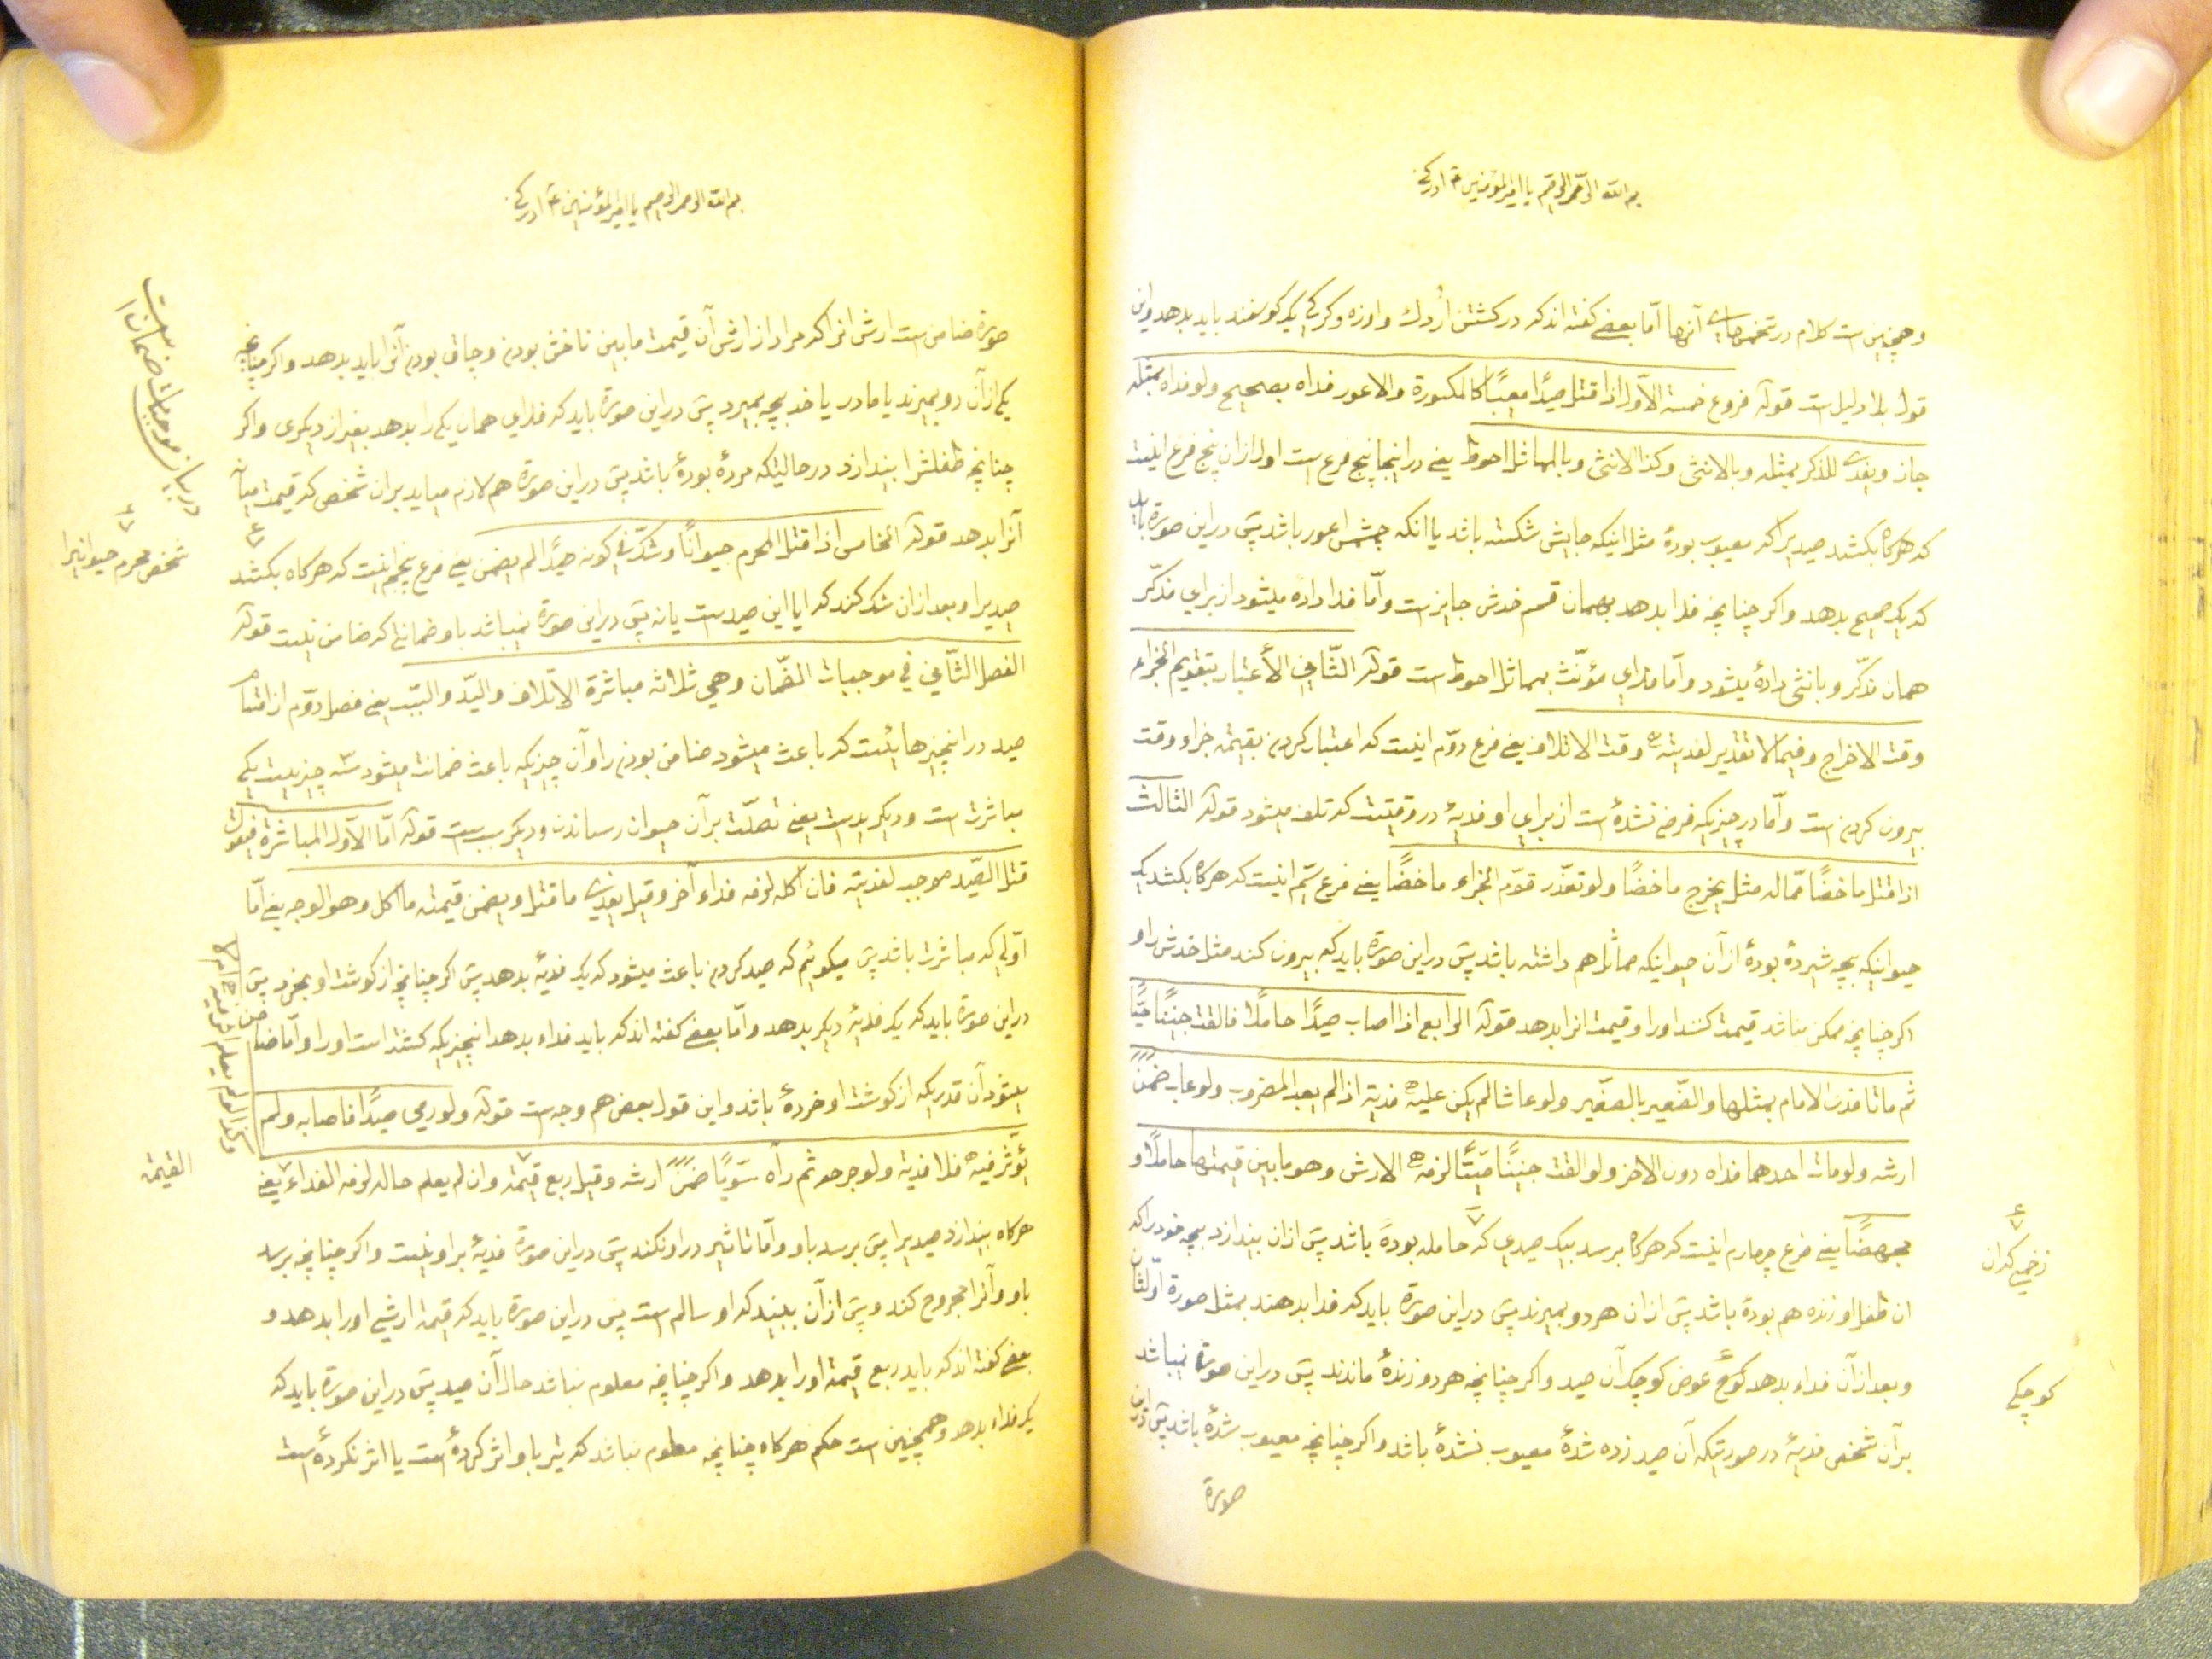 بسم الله الرحمن الرحیم یا امیرالمؤمنین ع ادرکنی
وهمچنین است کلام در تخمهای آنها امّا بعضی کفته اند که در کشتن اُردك و اوزه وکرکی یك کوسفند باید بدهد واین
قول بلا دلیل ست قوله فروع خمسة الاوّل اذا قتل صیدًا معیبًا کالمکسورة والاعور فداه بصحیح ولو فداه بمثله
جاز ویفدی للذکر بمثله وبالانثی وکذا الانثی وبالمماثل احوط یعنی در اینجا پنج فرع ست اول ازان پنج فرع اینست
که هرکاه بکشد صیدیرا که معیوب بودهٔ مثل اینکه جایش شکسته باشد یا انکه چشمش اعور باشد پس در این صورة باید
که یك صحیح بدهد واکر چنانچه فدا بدهد بهمان قسم خدش جایز ست وامّا فدا داده میشود از برای مذکّر
همان مذکّر وبانثی دادهٔ میشود وامّا فدای مؤنّث بمماثل احوط ست قوله الثّانی الأعتبار بتقویم الجزاء
وقت الاخراج وفیما لا تقدیر لفدیته وقت الاتلاف یعنی فرع دوّم اینست که اعتبار کردن بقیمته جزاء وقت
بیرون کردن است وامّا در چیزیکه فرض نشدهٔ است از برای او فدیهٔ در وقتیست که تلف میشود قوله الثالث
اذا قتل ماخضًا ممّا له مثل یخرج ماخضًا ولو تعذّر قوّم الجزاء ماخضًا یعنی فرع سیّم اینست که هرکاه بکشد یك
حیوانیکه بچه شیردهٔ بودهٔ از آن حیوانیکه مماثل هم داشته باشد پس در این صورة باید که بیرون کند مثل خدش را و
اکر چنانچه ممکن نباشد قیمت کنند اورا وقیمت انرا بدهد قوله الرابع اذا اصاب صیدًا حاملًا فالقت جنینًا حیًّا
ثم ماتا فدی الامام بمثلها والصّغیر بالصّغیر ولو عاشا لم یکن علیه فدیة اذا لم یعب المضروب ولو عاب ضمن
ارشه ولو مات احدهما فداه دون الاخر ولو القت جنینًا میّتًا لزمه الارش وهو ما بین قیمتها حاملًا و
مجهضًا یعنی فرع چهارم اینست که هرکاه برسد بیك صیدی که حامله بودهٔ باشد پس ازان بیندازد بچه خودرا که
ان طفل او زنده هم بودهٔ باشد پس ازان هر دو بمیرند پس در این صورة باید که فدا بدهند بمثل صورة اوّلشان
وبعد از آن فداء بدهد کوچك عوض کوچك آن صید واکر چنانچه هر دو زندهٔ ماندند پس در این صورة نمیباشد
برآن شخص فدیهٔ در صورتیکه آن صید زده شدهٔ معیوب نشدهٔ باشد واکر چنانچه معیوب شدهٔ باشد پس دراین
صورة
زخمی کران
کوچکی
بسم الله الرحمن الرحیم یا امیرالمؤمنین ع ادرکنی
صورة ضامن ست ارش انرا که مراد از ارش آن قیمت مابین ناخش بودن وچاق بودن آنرا باید بدهد واکر چنانچه
یکی از آن دو بمیرند یا مادر یا خد بچه بمیرد پس در این صورة باید که فدای همان یکی را بدهد بغیر از دیکری واکر
چنانچه طفلشرا بیندازد در حالیتکه مردهٔ بودهٔ باشد پس در این صورة هم لازم میاید بران شخص که قیمت میانه
آنرا بدهد قوله الخامس اذا قتل المحرم حیوانًا وشكّ فی کونه صیدًا لم یضمن یعنی فرع پنجم اینست که هرکاه بکشد
صیدیرا وبعد ازان شك کند که ایا این صید ست یا نه پس در این صورة نمیباشد باو ضمانی که ضامن نیست قوله
الفصل الثّانی فی موجبات الضّمان وهی ثلاثه مباشرة الاتلاف والید والتسبّب یعنی فصل دوّم از اقسام
صید در انچیزهائیست که باعث میشود ضامن بودن را وآن چیزیکه باعث ضمانت میشود سه چیز یست یکی
مباشرت ست ودیکر ید ست یعنی تصلّت برآن حیوان رساندن ودیکر سبب ست قوله امّا الاوّل المباشرة فنقول
قتل الصّید موجب لفدیته فان اکله لزمه فداء آخر وقیل یفدی ما قتل ویضمن قیمته ما اکل وهو الوجه یعنی امّا
اوّلی که مباشرت باشد پس میکوئیم که صید کردن باعث میشود که یك فدیهٔ بدهد پس اکر چنانچه از کوشت او بخورد پس
در این صورة باید که یك فدیهٔ دیکر بدهد وامّا بعضی کفته اند که باید فداء بدهد انچیزیکه کشته است اورا وامّا ضامن
میشود آن قدریکه از کوشت او خردهٔ باشد واین قول بعض هم وجه ست قوله ولو رمی صیدًا فاصابه ولم
یؤثّر فیه فلا فدیة ولو جرحه ثم رآه سویًّا ضمن ارشه وقیل ربع قیمته وان لم یعلم حاله لزمه الفداء یعنی
هرکاه بیندازد صیدیرا پس برسد باو وامّا تاثیر در او نکند پس در این صورة فدیهٔ بر او نیست واکر چنانچه برسد
باو وآنرا مجروح کند وپس از آن ببیند که او سالم ست پس در این صورة باید که قیمة ارشی اورا بدهد و
بعضی کفته اند که باید ربع قیمة اورا بدهد واکر چنانچه معلوم نباشد حال آن صید پس در این صورة باید که
یك فداء بدهد وهمچنین است حکم هرکاه چنانچه معلوم نباشد که تیر باو اثر کردهٔ است یا اثر نکردهٔ است
در بیان موجبات ضمان است
شخص محرم حیوانیرا
وکذا لو لم یعلم اثّر فیه ام لا
القیمة